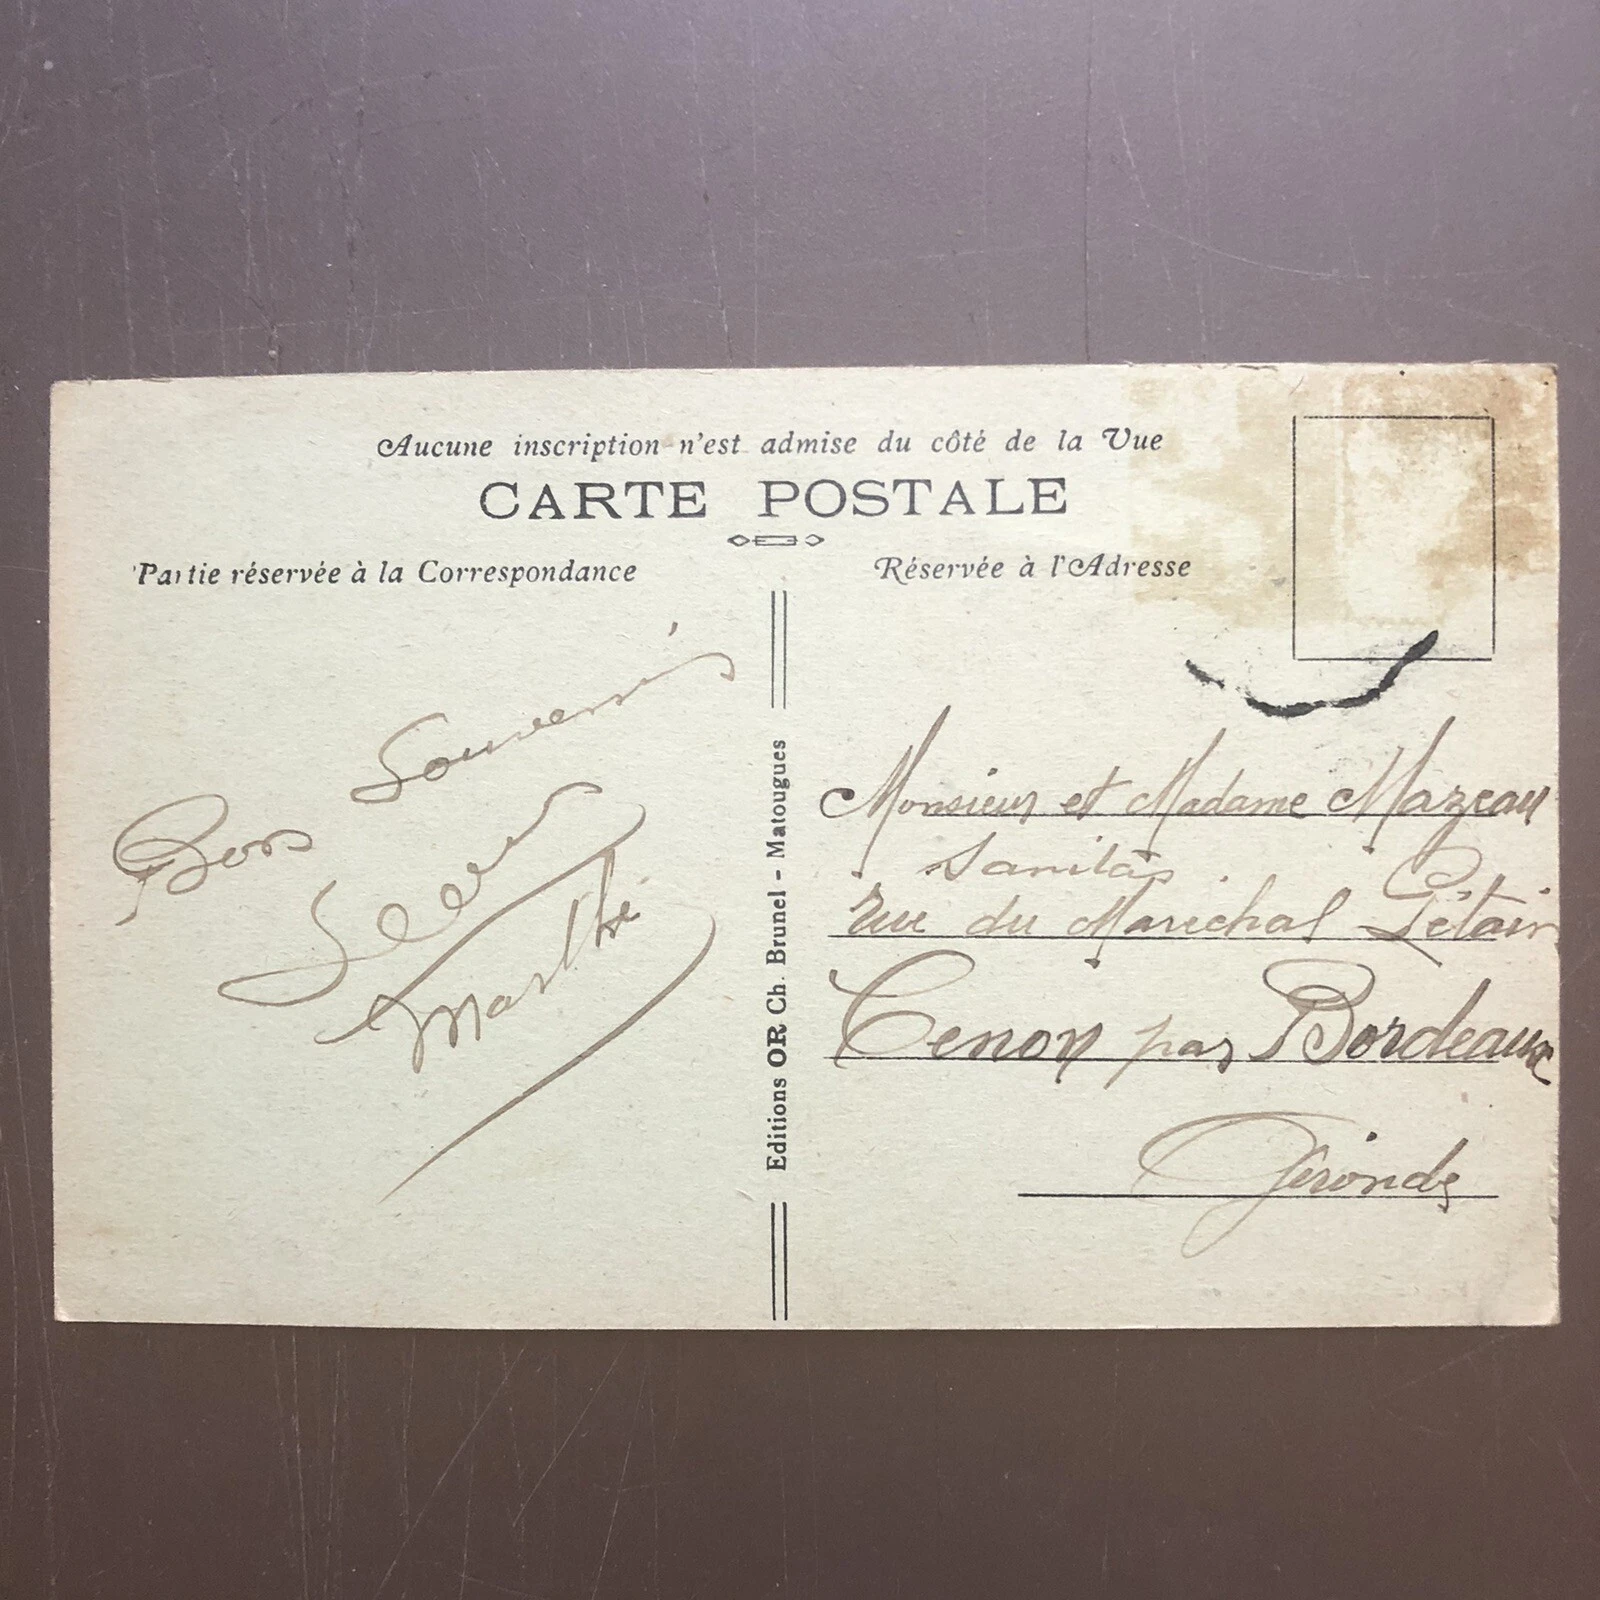 Aucune inscription n'est admise du côté de la Vue
CARTE POSTALE
Partie réservée à la Correspondance
Réservée à l'Adresse
Bons Souvenirs
Marthe
Editions OR Ch. Brunel - Matougues
Monsieur et Madame Mazeau
Sanitas
rue du Maréchal Pétain
Cenon par Bordeaux
Gironde